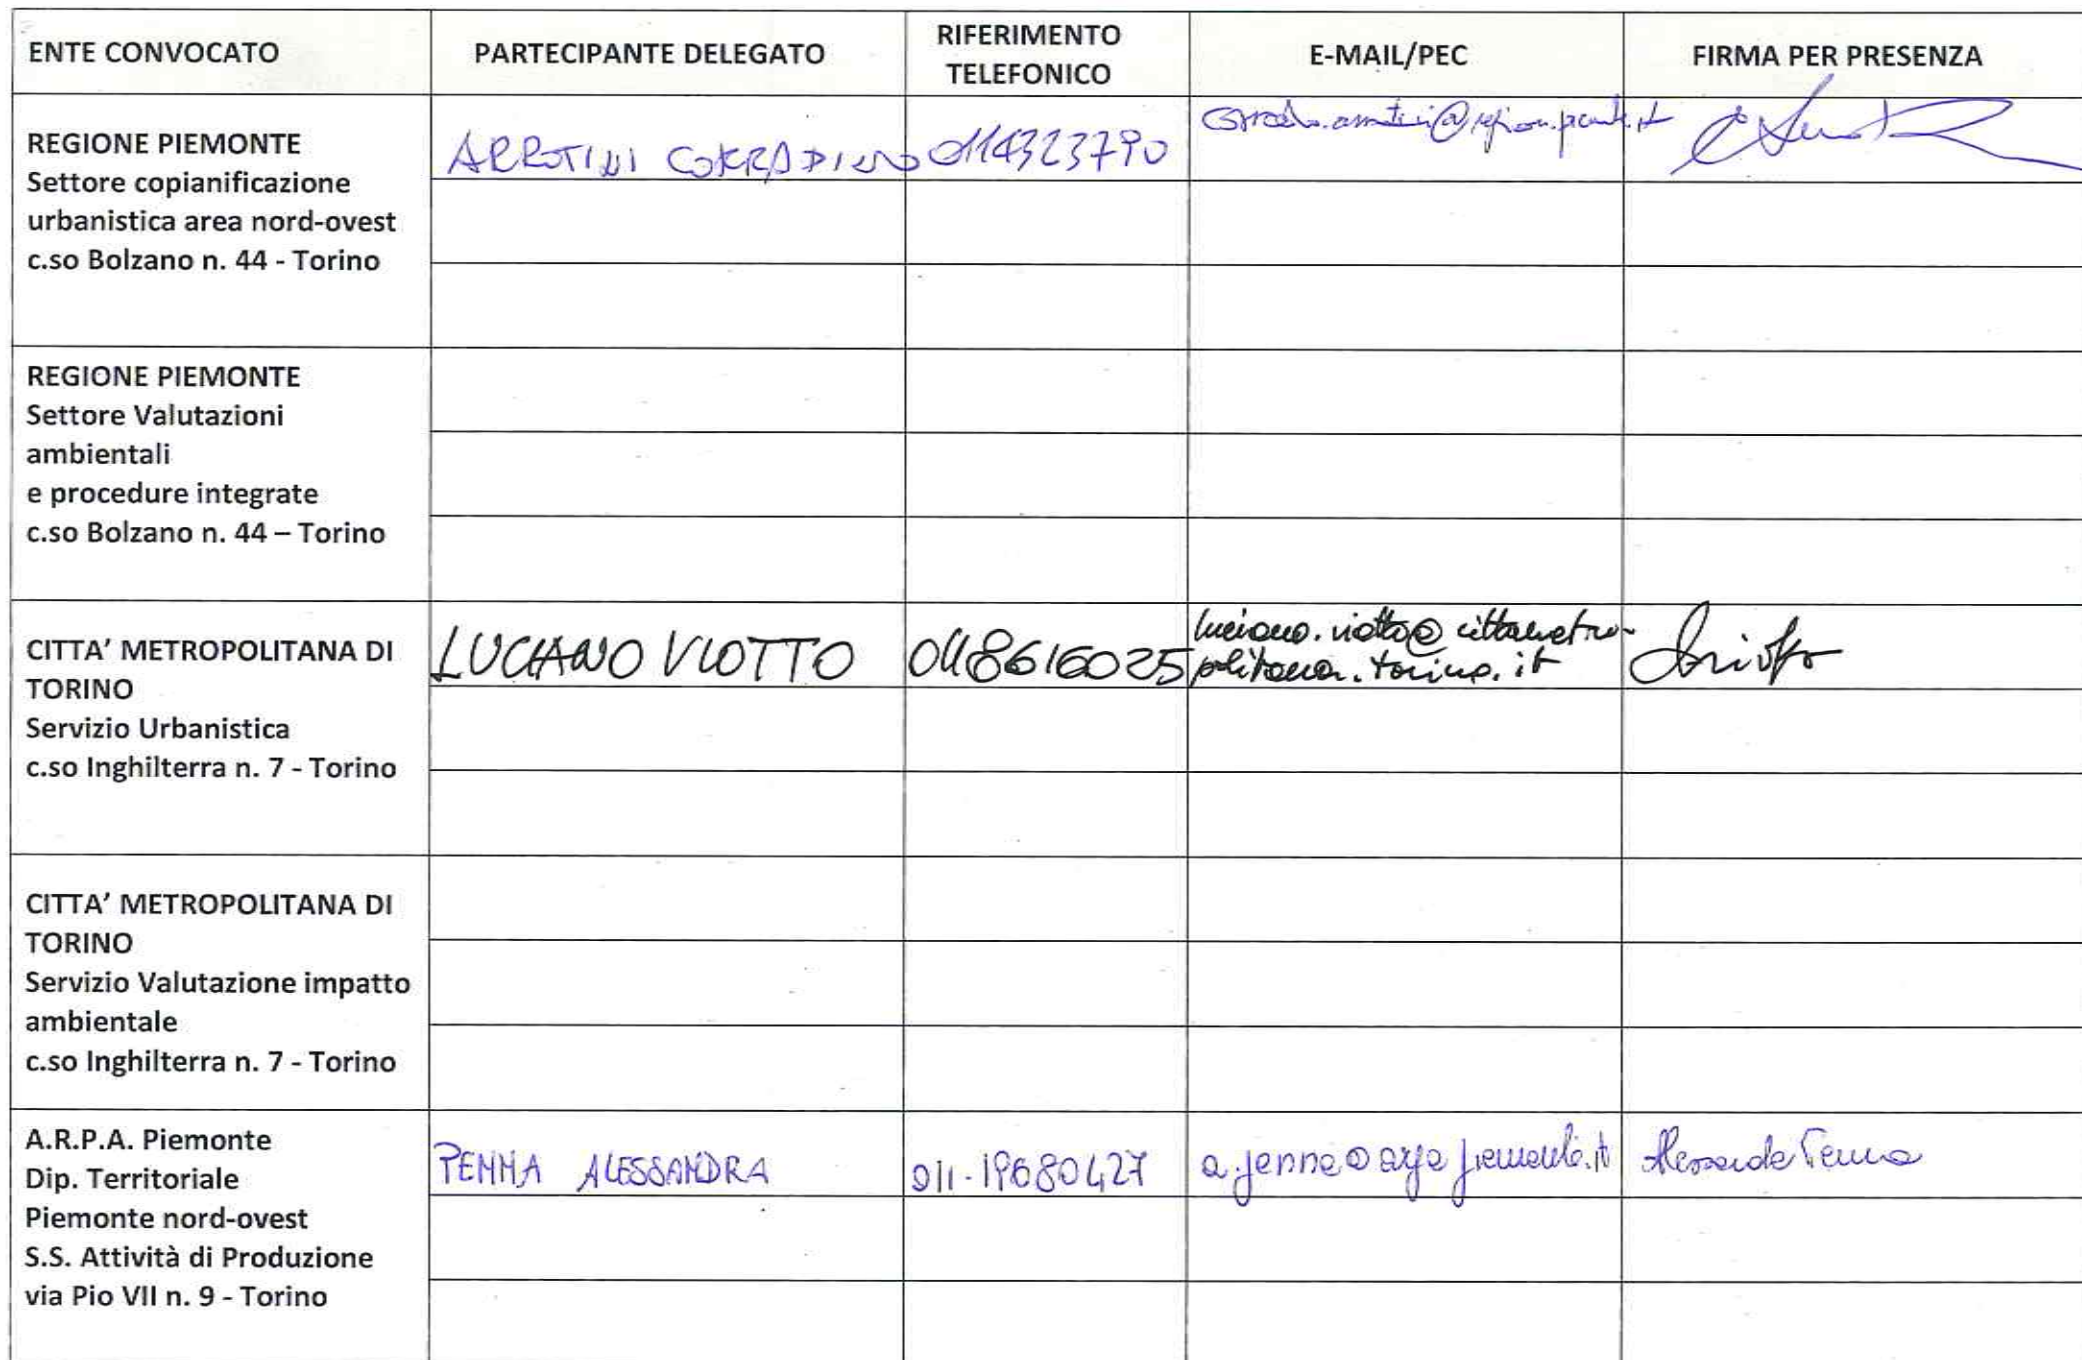 ENTE CONVOCATO
PARTECIPANTE DELEGATO
RIFERIMENTO
TELEFONICO
E-MAIL/PEC
FIRMA PER PRESENZA
REGIONE PIEMONTE
Settore copianificazione
urbanistica area nord-ovest
c.so Bolzano n. 44 - Torino
ARROTINI CORRADINO
0114323790
REGIONE PIEMONTE
Settore Valutazioni
ambientali
e procedure integrate
c.so Bolzano n. 44 – Torino
CITTA' METROPOLITANA DI
TORINO
Servizio Urbanistica
c.so Inghilterra n. 7 - Torino
LUCIANO VIOTTO
0118616025
luciano.viotto@cittametro-
politana.torino.it
Viotto
CITTA' METROPOLITANA DI
TORINO
Servizio Valutazione impatto
ambientale
c.so Inghilterra n. 7 - Torino
A.R.P.A. Piemonte
Dip. Territoriale
Piemonte nord-ovest
S.S. Attività di Produzione
via Pio VII n. 9 - Torino
PENNA ALESSANDRA
011-19680427
a.penna@arpa.piemonte.it
Alessandra Penna